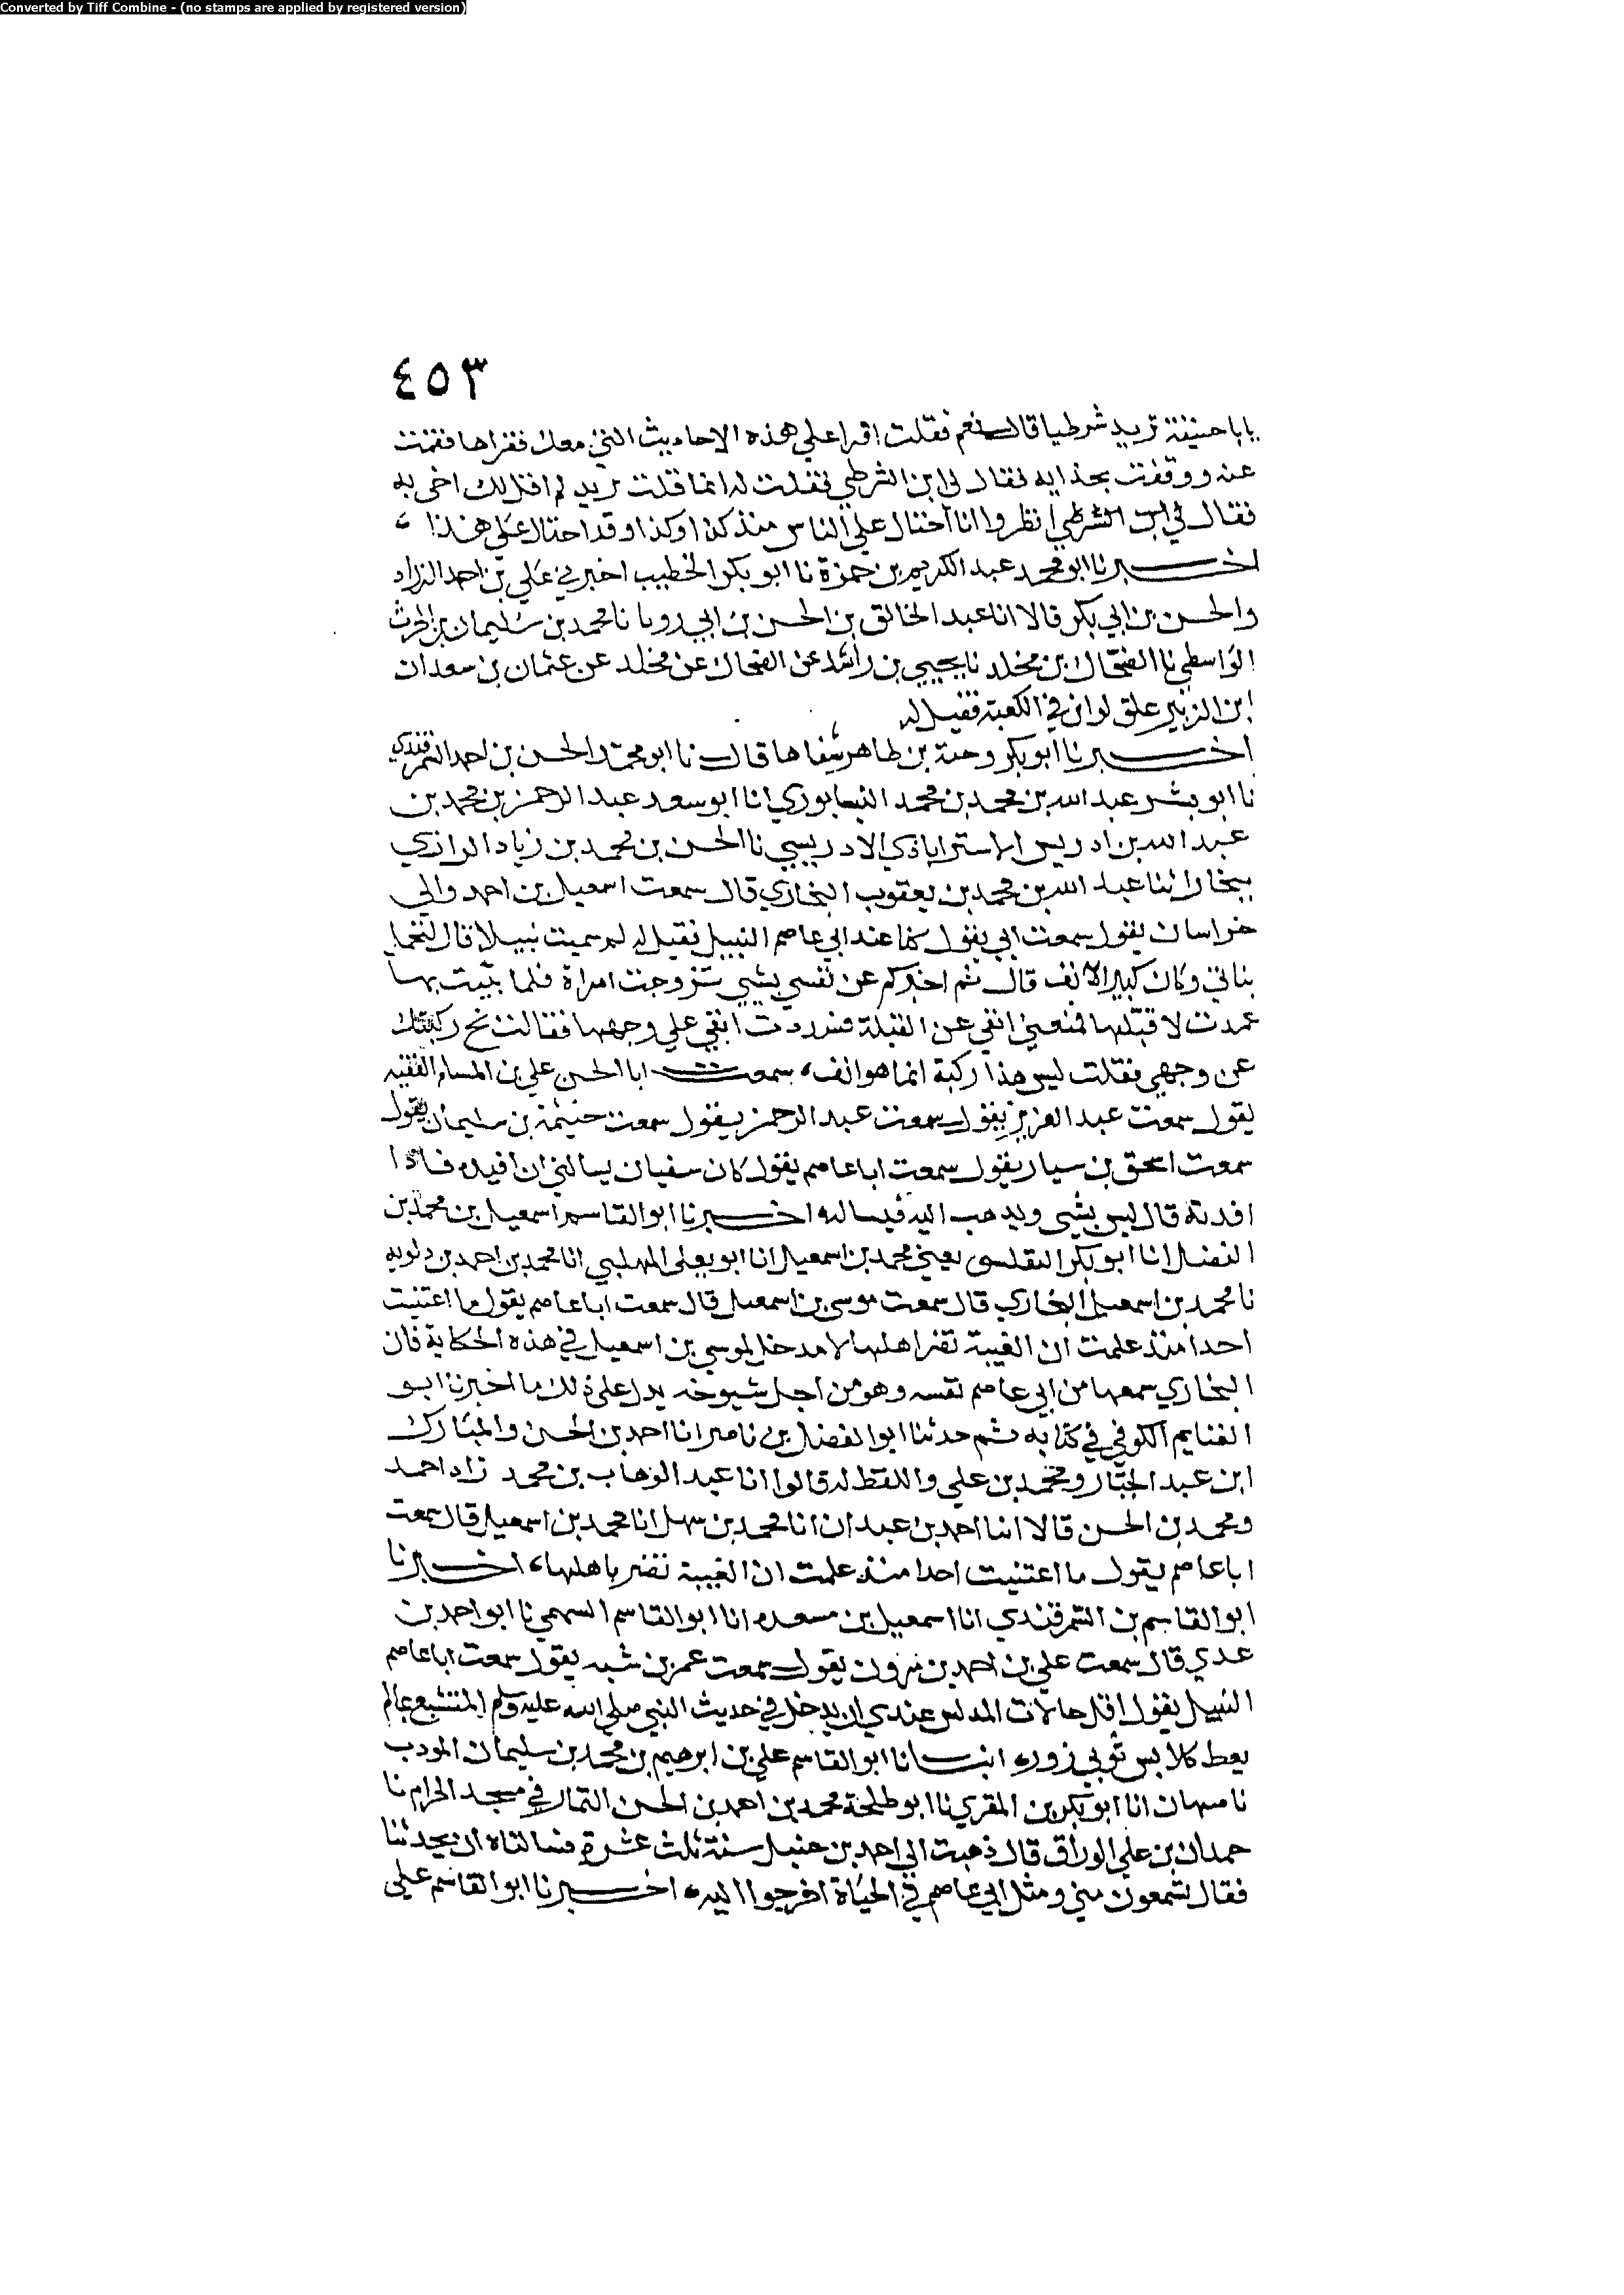 Converted by Tiff Combine - (no stamps are applied by registered version)
٤٥٣
يابا حنيفة تريد شرطيا قال نعم فقلت اقرا علي هذه الاحاديث التي معك فقراها فقمت
عنه ووقفت بحذايه فقال لي ابن الشرطي فقلت له انما قلت تريد لم اقل لك اجي به
فقال لي ابن الشرطي انظروا انا احتال علي الناس منذ كذا وكذا وقد احتال علي هذا
اخبرنا ابو محمد عبد الكريم بن حمزة نا ابو بكر الخطيب اخبرني علي بن احمد الرزاد
والحسن بن ابي بكر قالا انا عبد الخالق بن الحسن بن ابي روبا نا محمد بن سليمان بن الحرث
الواسطي نا الضحاك بن مخلد نا يحيي بن راشد عن الضحاك عن مخلد عن عثمان بن سعد ان
ابن الزبير علق لوا في الكعبة فقيل له
اخبرنا ابو بكر وحية بن طاهر شفاها قال نا ابو محمد الحسن بن احمد السمرقندي
نا ابو بشر عبد الله بن محمد بن محمد النيسابوري انا ابو سعد عبد الرحمن بن محمد بن
عبد الله بن ادريس الاستراباذي الادريسي نا الحسن بن محمد بن زياد الرازي
ببخارا ثنا عبد الله بن محمد بن يعقوب البخاري قال سمعت اسمعيل بن احمد والي
خراسان يقول سمعت ابي يقول كنا عند ابي عاصم النبيل فقيل له لم سميت نبيلا قال لتجمل
بناتي وكان كبير الانف قال ثم اخبركم عن نفسي بشيي تزوجت امراة فلما بيت بها
عمدت لاقبلها فمنعني انفي عن القبلة فشددت انفي علي وجهها فقالت نح ركبتك
عن وجهي فقلت ليس هذا ركبة انما هو انف، سمعت ابا الحسن علي بن المسلم الفقيه
يقول سمعت عبد العزيز يقول سمعت عبد الرحمن يقول سمعت خيثمة بن سليمان يقول
سمعت اسحق بن سيار يقول سمعت ابا عاصم يقول كان سفيان يسالني ان افيده فاذا
افدته قال ليس بشيي ويذهب اليه فيساله اخبرنا ابو القاسم اسمعيل بن محمد بن
الفضل انا ابو بكر التفلسي يعني محمد بن اسمعيل انا ابو يعلي المهلبي انا محمد بن احمد بن دلويه
نا محمد بن اسمعيل البخاري قال سمعت موسي بن اسمعيل قال سمعت ابا عاصم يقول ما اعتبت
احدا منذ علمت ان الغيبة تضر اهلها لا مدخل لموسي بن اسمعيل في هذه الحكاية فان
البخاري سمعها من ابي عاصم نفسه وهو من اجل شيوخه يدل علي ذلك ما اخبرنا ابو
الغنايم الكوفي في كتابه ثم حدثنا ابو الفضل بن ناصر انا احمد بن الحسن والمبارك
ابن عبد الجبار ومحمد بن علي واللفظ له قالوا انا عبد الوهاب بن محمد زاد احمد
ومحمد بن الحسن قالا انا احمد بن عبدان انا محمد بن سهل انا محمد بن اسمعيل قال سمعت
ابا عاصم يقول ما اعتبت احدا منذ علمت ان الغيبة تضر باهلها، اخبرنا
ابو القاسم بن السمرقندي انا اسمعيل بن مسعده انا ابو القاسم السهمي نا ابو احمد بن
عدي قال سمعت علي بن احمد بن مروان يقول سمعت عمر بن شبه يقول سمعت ابا عاصم
النبيل يقول اقل حالات المدلس عندي ان يدخل في حديث النبي صلي الله عليه وسلم المتشبع بما لم
يعط كلابس ثوبي زوره انبانا ابو القاسم علي بن ابرهيم بن محمد بن سليمان المودب
نا صبهان انا ابو بكر بن المقري نا ابو طلحة محمد بن احمد بن الحسن التمار في مسجد الحرام نا
حمدان بن علي الوراق قال ذهبت الي احمد بن حنبل سنة ثلث عشرة فسالناه ان يحدثنا
فقال تسمعون مني ومثل ابي عاصم في الحياة اخرجوا اليه، اخبرنا ابو القاسم علي